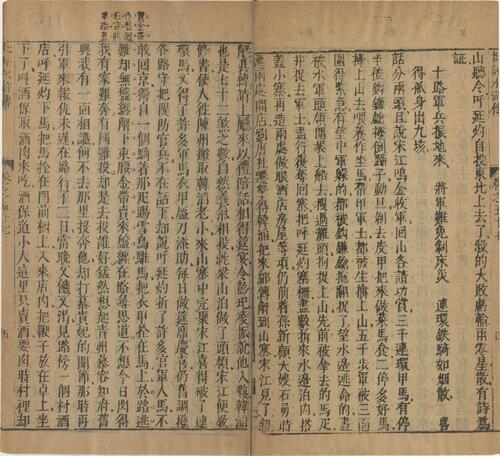 山聽令呼延灼自投東北上去了殺的大敗虧輸雨零星散有詩爲
證
十路軍兵振地來 將軍難免剝床災 連環鐵騎如烟散 喜
得孤身出九垓
話分兩頭且說宋江鳴金收軍回山各請功賞三千連環甲馬有停
半被鈎鐮鎗撥倒蹄子剝去皮甲把來做菜馬食二停多好馬
捧上山去喂養作坐馬帶甲軍士都被生擒上山五千步軍被三面
圍得緊急有望中軍躲的都被鈎鐮鎗拖翻捉了望水邊逃命的盡
被水軍頭領圍裹上船去拽過灘頭拘捉上山先前被拿去的馬疋
并捉去軍士盡行復奪回寨把呼延灼寨柵盡數拆來水邊泊內搭
蓋小寨再造兩處做眼酒店房屋等項仍前着孫新顧大嫂石勇時
遷兩處開店劉唐杜遷拏得韓滔把來綁縛解到山寨宋江見了親
解其縛請上廳來以禮陪話相待筵宴令彭玘凌振說他入夥韓滔
也是七十二煞之數自然義氣相投就梁山泊做了頭領宋江便教
修書使人往陳州搬取韓滔老小來山寨中完聚宋江喜得破了連
環馬又得了許多軍馬衣甲盔刀添助每日做筵席慶喜仍舊調撥
各路守把隄防官兵不在話下却說呼延灼折了許多官軍人馬不
敢回京獨自一個騎着那疋踢雪烏騅馬把衣甲拴在馬上於路逃
難却無盤纏解下束腰金帶賣來盤纏在路尋思道不想今日閃得
我有家難奔有國難投却是去投誰好猛然想起青州慕容知府舊
與我有一面相識何不去那里投奔他却打慕貴妃的關節那時再
引軍來報仇未遲在路行了二日當晚又饑又渴見路傍一個村酒
店呼延灼下馬把馬拴在門前樹上入來店內把鞭子放在卓上坐
下了叫酒保取酒肉來吃酒保道小人這里只賣酒要肉時村裡却
賣金帶